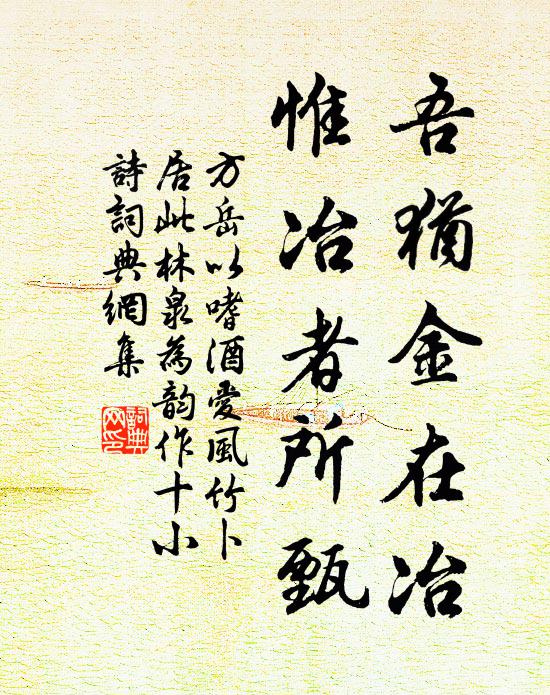 吾猶金在冶
惟冶者所甄
方岳以嗜酒愛風竹卜
居此林泉為韵作十小
詩詞典網集
詞典
网印